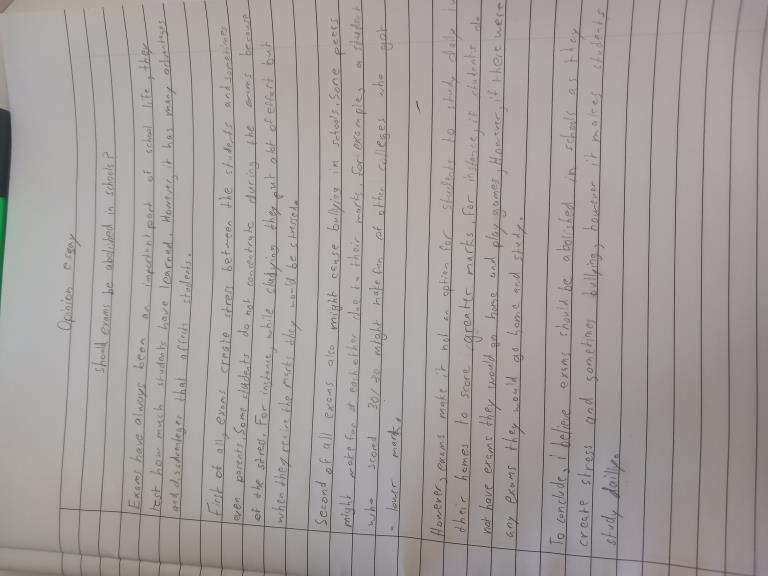 Opinion essay
should exams be abolished in schools?
Exams have always been an important part of school life, they
test how much students have learned. However, it has many advantages
and disadvantages that affects students.
First of all, exams create stress between the students and sometimes
even parents. Some students do not concentrate during the exams because
of the stress. For instance, while studying they put alot of effort but
when they recive the marks they would be stressed.
Second of all exams also might cause bullying in schools. Some peers
might make fun of each other due to their marks. For example, a student
who scored 30/30 might make fun of other colleges who got
- lower mark.
However, exams make it not an option for students to study daily in
their homes to score greater marks. For instance, if students do
not have exams they would go home and play games. However, if there were
any exams they would go home and study.
To conclude, I believe exams should be abolished in schools as they
create stress and sometimes bullying, however it makes students
study daily.